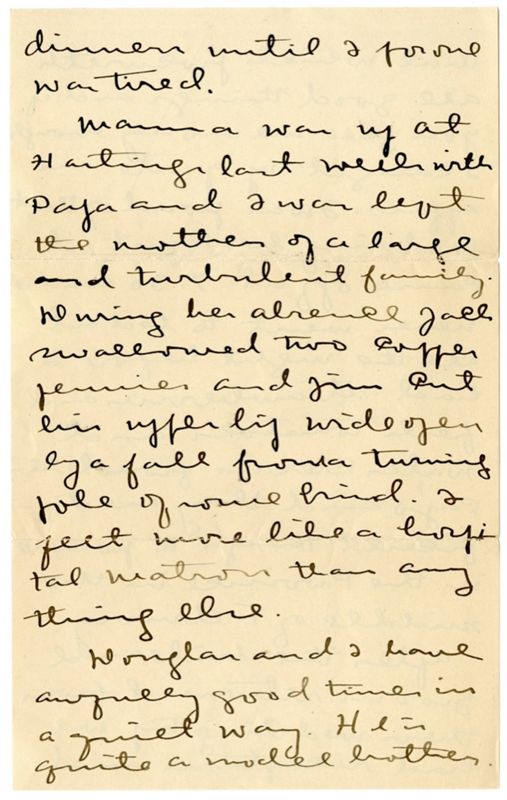 dinners until I for one
was tired.
Mamma was up at
Hastings last week with
Papa and I was left
the mother of a large
and turbulent family.
During her absence Jack
swallowed two copper
pennies and Jim cut
his upper lip wide open
by a fall from a turning
pole of some kind. I
feel more like a hospi
tal matron than any
thing else.
Douglas and I have
awfully good times in
a quiet way. He is
quite a model brother.